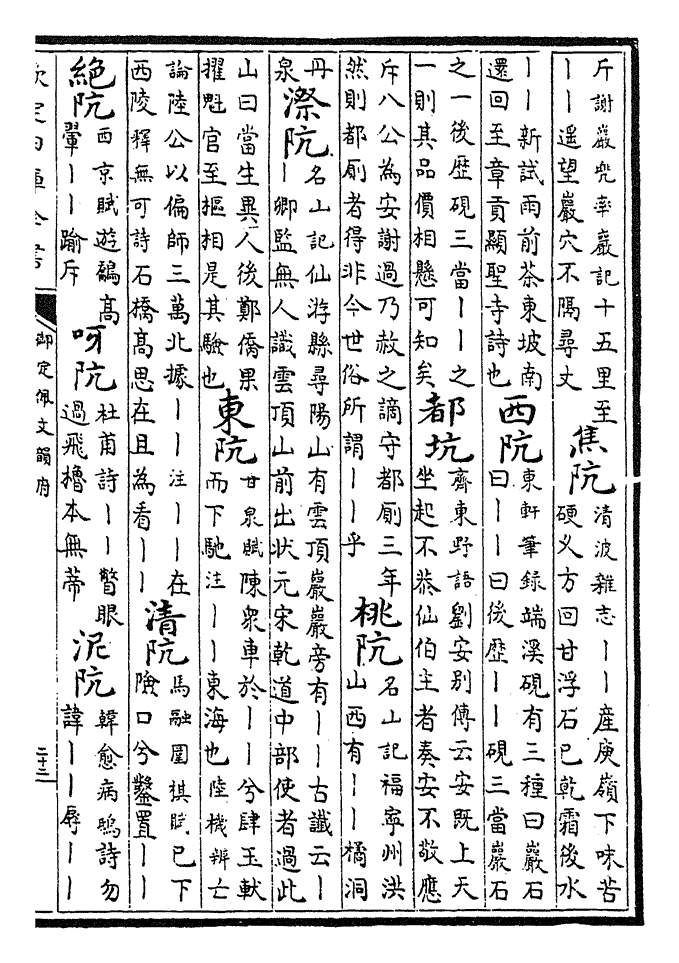 斤謝巖兜率巖記十五里至
丨丨遥望巖穴不隔尋丈
焦阬
清波雜志丨丨產庾嶺下味苦
硬乂方回甘浮石已乾霜後水
丨丨新試雨前茶東坡南
還回至章貢顯聖寺詩也
西阬
東軒筆録端溪硯有三種曰巖石
曰丨丨曰後歴丨丨硯三當巖石
之一後歴硯三當丨丨之
一則其品價相懸可知矣
都坑
齊東野語劉安别傳云安既上天
坐起不恭仙伯主者奏安不敬應
斥八公為安謝過乃赦之謫守都厠三年
然則都厠者得非今世俗所謂丨丨乎
桃阬
名山記福寧州洪
山西有丨丨橘洞
丹
泉
漈阬
名山記仙游縣尋陽山有雲頂巖巖旁有丨丨古讖云丨
丨卿監無人識雲頂山前出状元宋乾道中部使者過此
山曰當生異人後鄭僑果
擢魁官至樞相是其驗也
東阬
甘泉賦陳衆車於丨丨兮肆玉軑
而下馳注丨丨東海也陸機辨亡
論陸公以偏師三萬北據丨丨注丨丨在
西陵釋無可詩石橋高思在且為看丨丨
清阬
馬融圍棋賦已下
險口兮鑿置丨丨
絶阬
西京賦遊鷮高
翬丨丨踰斥
呀阬
杜甫詩丨丨瞥眼
過飛櫓本無蒂
泥阬
韓愈病鴟詩勿
諱丨丨辱丨丨
欽定四庫全書
御定佩文韻府
二十三